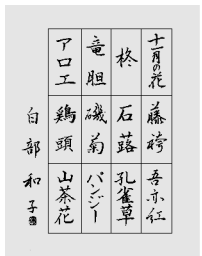 十一月の花
藤袴
吾亦紅
柊
石蕗
孔雀草
竜胆
磯菊
パンジー
アロエ
鶏頭
山茶花
白部和子